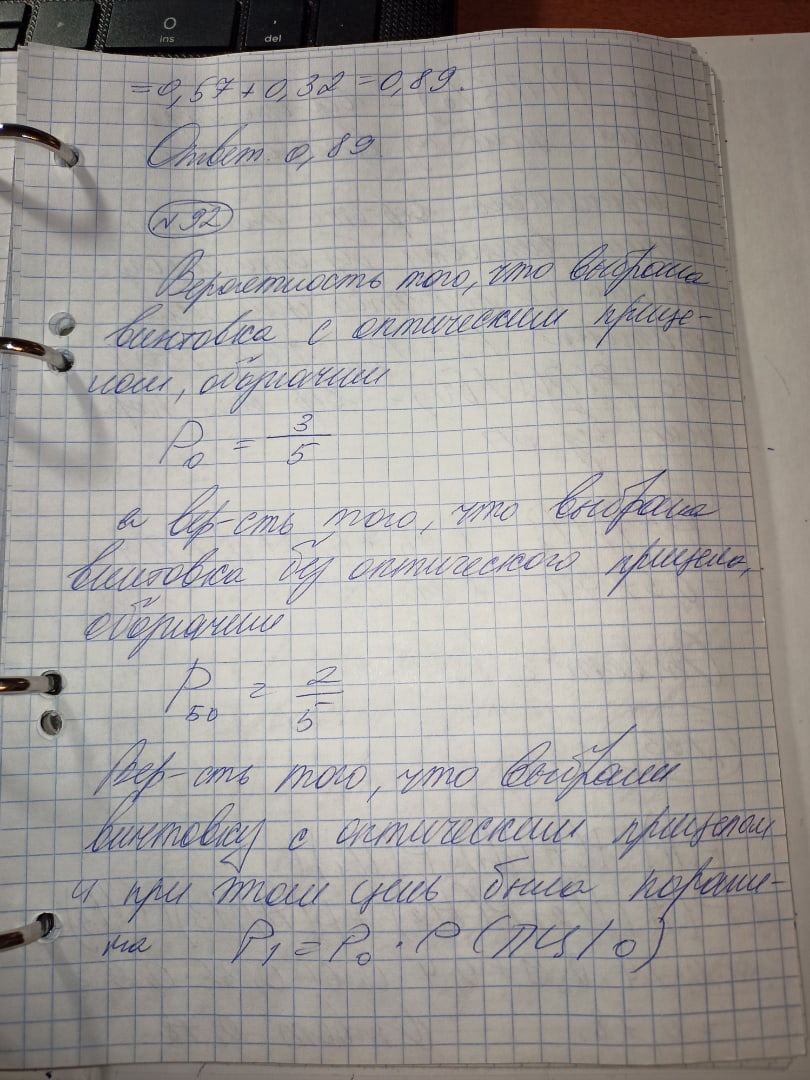 ins
del
= 0,57 + 0,32 = 0,89.
Ответ. 0,89.
№92
Вероятность того, что выбрана
винтовка с оптическим прице-
лом, обозначим
P₀ = 3/5
а вер-сть того, что выбрана
винтовка без оптического прицела,
обозначим
P_БО = 2/5
Вер-сть того, что выбрали
винтовку с оптическим прицелом
и при этом цель была пораже-
на P₁ = P₀ · P(ПЦ/О)